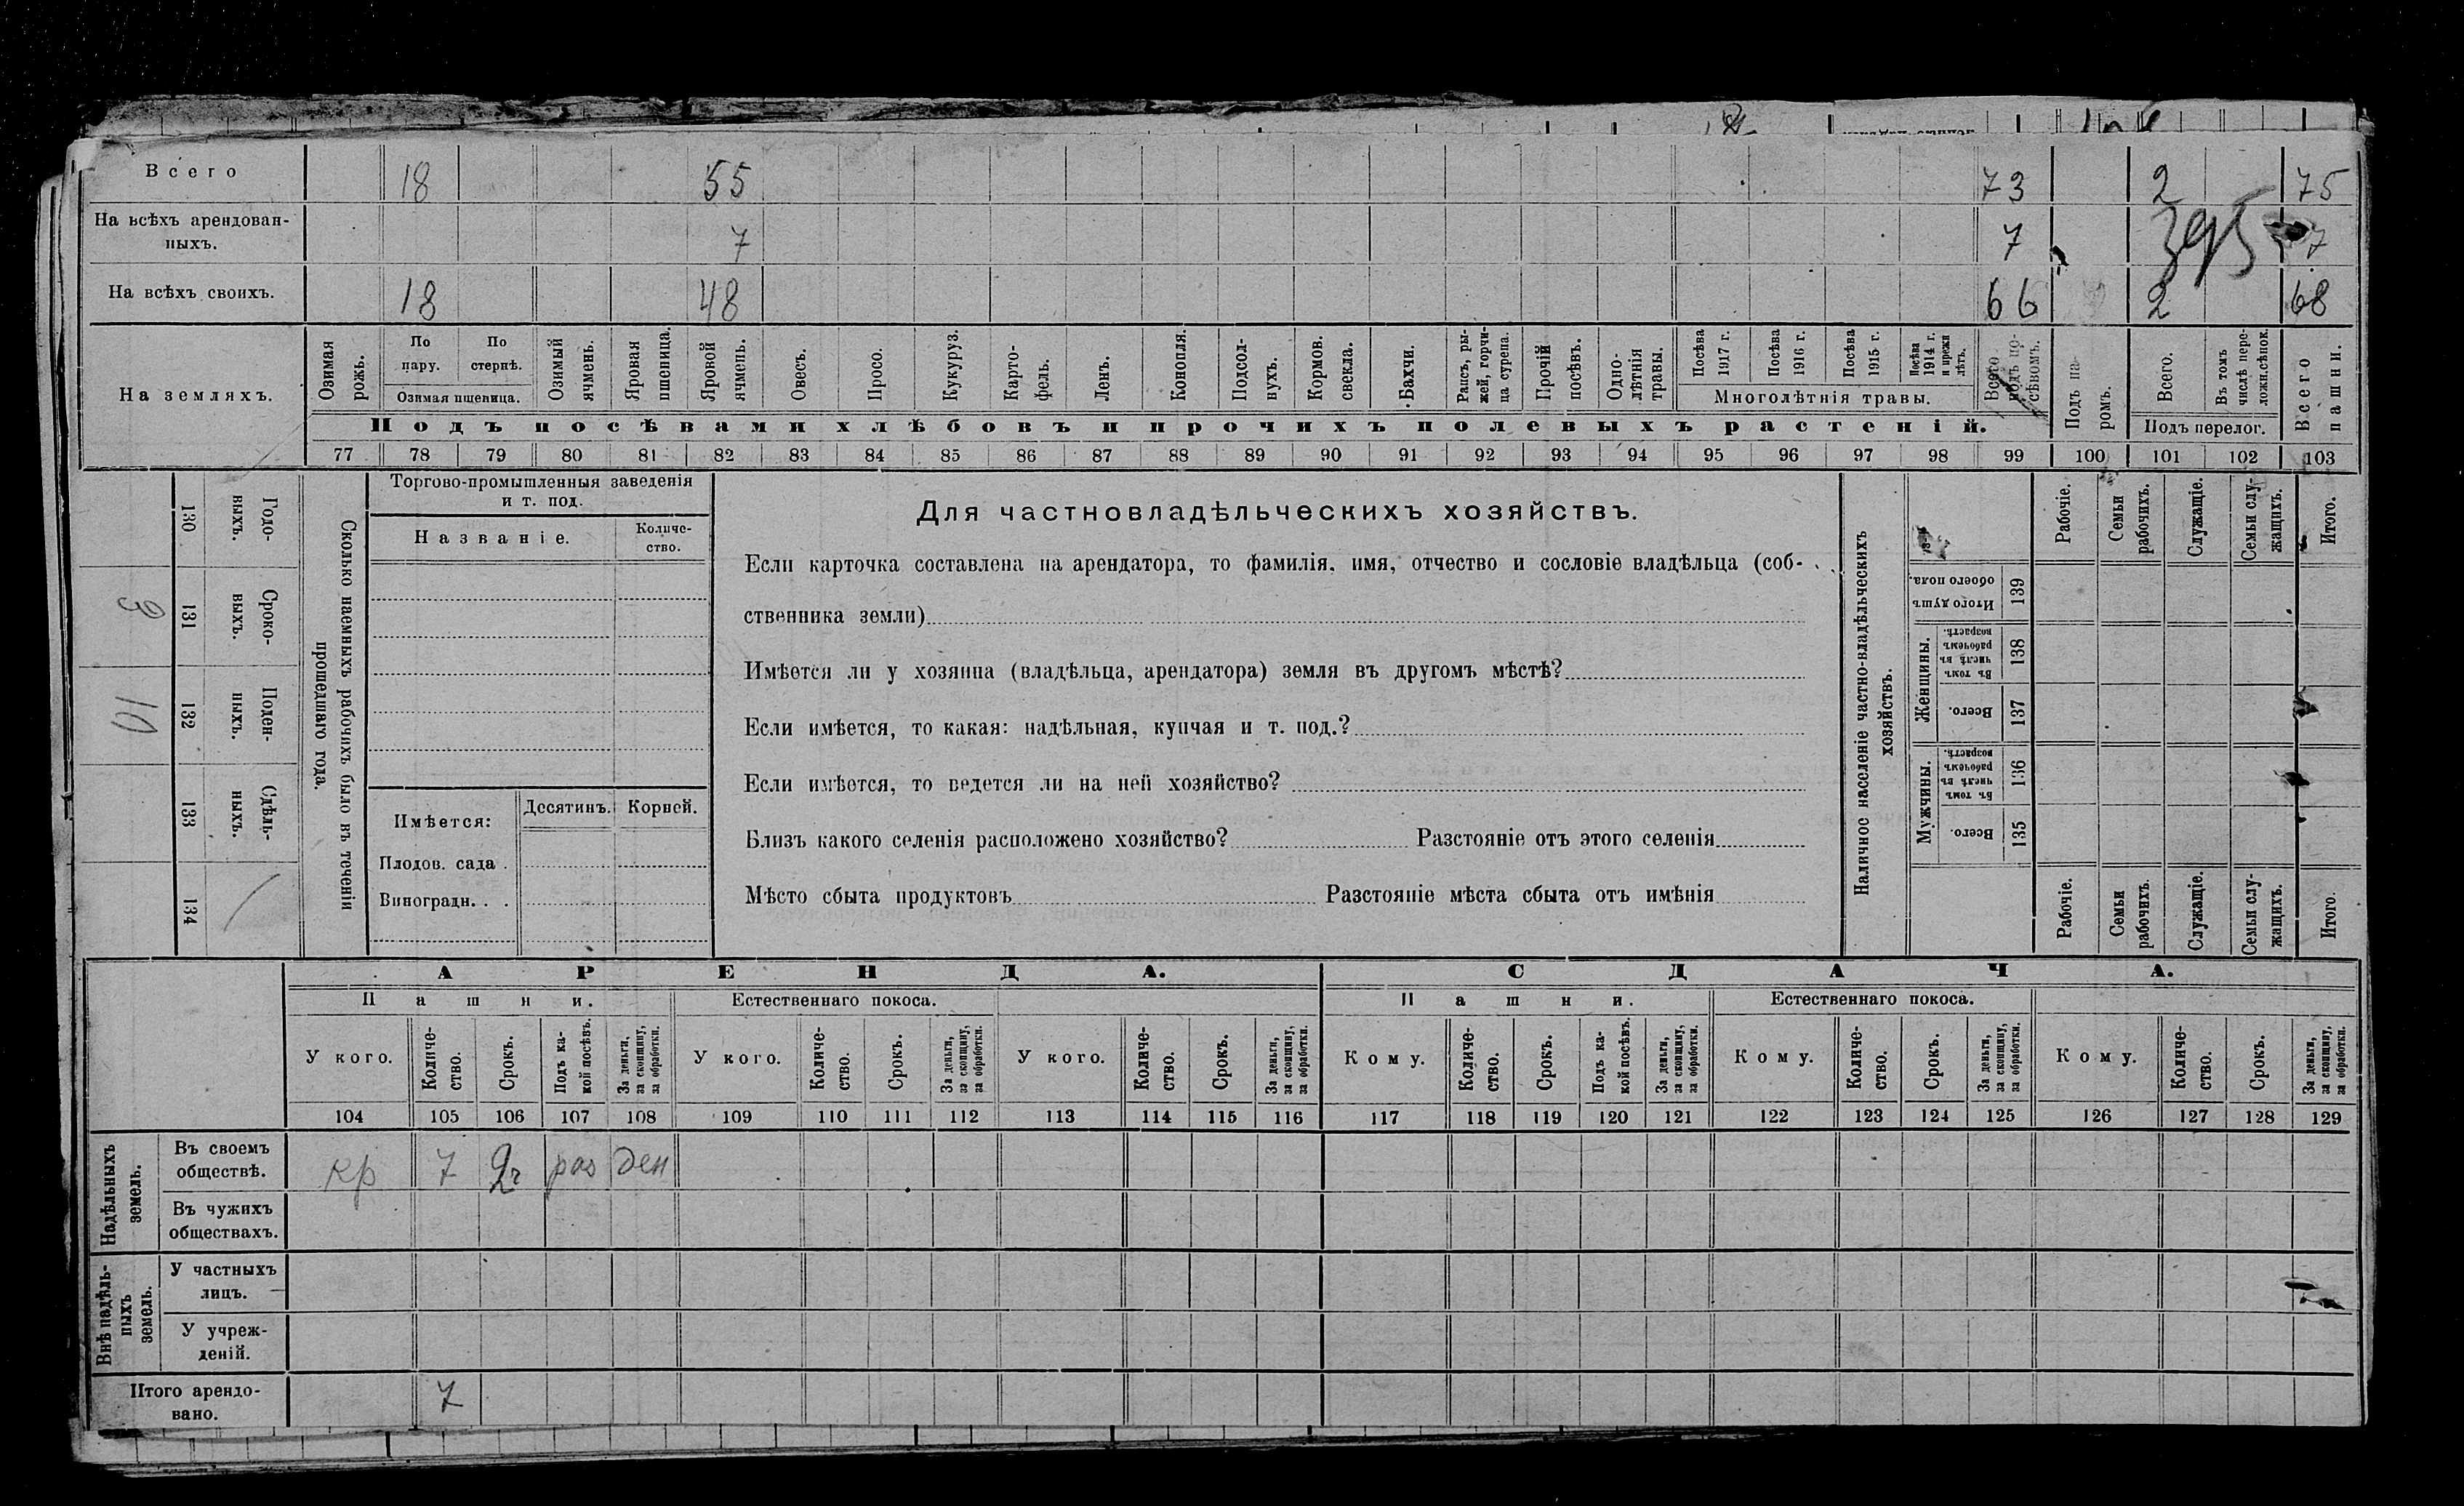 Всего 18 55 73 2 75
На всѣхъ арендован-
ныхъ. 7 7 395 7
На всѣхъ своихъ. 18 48 66 2 68
На земляхъ.
Озимая рожь.
По пару.
По стернѣ.
Озимая пшеница.
Озимый ячмень.
Яровая пшеница.
Яровой ячмень.
Овесъ.
Просо.
Кукуруз.
Карто-
фель.
Ленъ.
Конопля.
Подсол-
нухъ.
Кормов. свекла.
Бахчи.
Рапсъ, ры-
жей, горчи-
ца сурепа.
Прочій посѣвъ.
Одно-
лѣтнія травы.
Посѣва 1917 г.
Посѣва 1916 г.
Посѣва 1915 г.
Посѣва 1914 г. и прежн лѣтъ.
Многолѣтнія травы.
Всего подъ по-
сѣвомъ.
Подъ па-
ромъ.
Всего.
Въ томъ числѣ пере-
ложн.сѣнок.
Подъ перелог.
Всего пашни.
Подъ посѣвами хлѣбовъ и прочихъ полевыхъ растеній.
77 78 79 80 81 82 83 84 85 86 87 88 89 90 91 92 93 94 95 96 97 98 99 100 101 102 103
Сколько наемныхъ рабочихъ было въ теченіи
прошедшаго года.
Годо-
выхъ.
130
Сроко-
выхъ.
131
3
Поден-
ныхъ.
132
10
Сдѣль-
ныхъ.
133
134
Торгово-промышленныя заведенія
и т. под.
Названіе.
Количе-
ство.
Имѣется:
Десятинъ.
Корней.
Плодов. сада .
Виноградн. . .
Для частновладѣльческихъ хозяйствъ.
Если карточка составлена на арендатора, то фамилія, имя, отчество и сословіе владѣльца (соб-
ственника земли)
Имѣется ли у хозяина (владѣльца, арендатора) земля въ другомъ мѣстѣ?
Если имѣется, то какая: надѣльная, купчая и т. под.?
Если имѣется, то ведется ли на ней хозяйство?
Близъ какого селенія расположено хозяйство? Разстояніе отъ этого селенія
Мѣсто сбыта продуктовъ Разстояніе мѣста сбыта отъ имѣнія
Наличное населеніе частно-владѣльческихъ
хозяйствъ.
Рабочіе.
Семьи рабочихъ.
Служащіе.
Семьи слу-
жащихъ.
Итого.
Итого душъ обоего пола.
139
Женщины.
Въ томъ числѣ въ рабочемъ возрастѣ.
138
Всего.
137
Мужчины.
Въ томъ числѣ въ рабочемъ возрастѣ.
136
Всего.
135
Рабочіе.
Семьи рабочихъ.
Служащіе.
Семьи слу-
жащихъ.
Итого.
АРЕНДА. СДАЧА.
Пашни. Естественнаго покоса. Пашни. Естественнаго покоса.
У кого.
Количе-
ство.
Срокъ.
Подъ ка-
кой посѣвъ.
За деньги, за скопщину, за обработки.
У кого.
Количе-
ство.
Срокъ.
За деньги, за скопщину, за обработки.
У кого.
Количе-
ство.
Срокъ.
За деньги, за скопщину, за обработки.
Кому.
Количе-
ство.
Срокъ.
Подъ ка-
кой посѣвъ.
За деньги, за скопщину, за обработки.
Кому.
Количе-
ство.
Срокъ.
За деньги, за скопщину, за обработки.
Кому.
Количе-
ство.
Срокъ.
За деньги, за скопщину, за обработки.
104 105 106 107 108 109 110 111 112 113 114 115 116 117 118 119 120 121 122 123 124 125 126 127 128 129
Надѣльныхъ земель.
Въ своемъ
обществѣ. кр 7 2г ден
Въ чужихъ
обществахъ.
Внѣ надѣль-
ныхъ земель.
У частныхъ
лицъ.
У учреж-
деній.
Итого арендо-
вано. 7